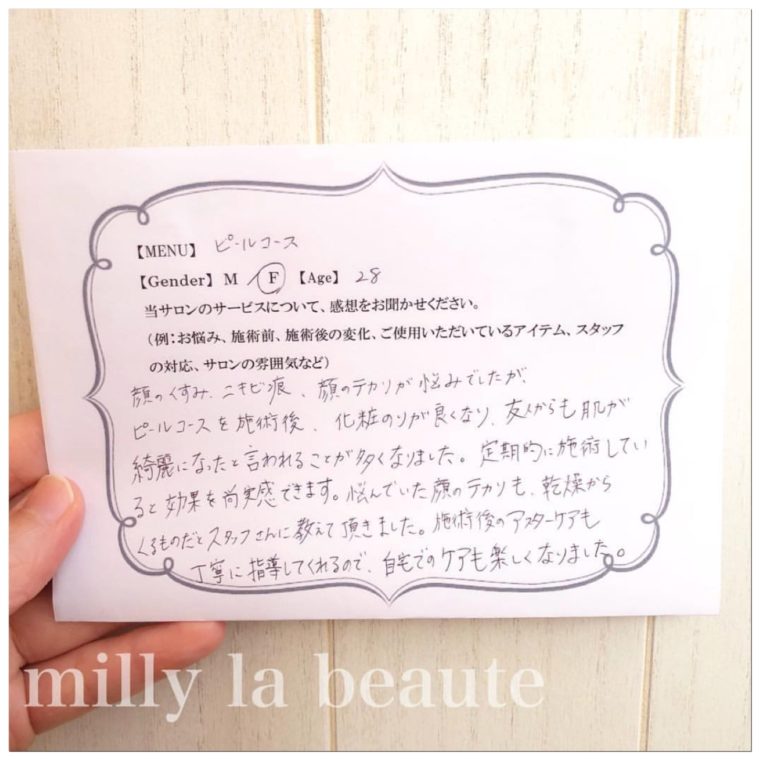 【MENU】 ピールコース
【Gender】 M / F 【Age】 28
当サロンのサービスについて、感想をお聞かせください。
(例:お悩み、施術前、施術後の変化、ご使用いただいているアイテム、スタッフ
の対応、サロンの雰囲気など)
顔のくすみ、ニキビ痕、顔のテカリが悩みでしたが、
ピールコースを施術後、化粧のりが良くなり、友人からも肌が
綺麗になったと言われることが多くなりました。定期的に施術してい
ると効果を尚実感できます。悩んでいた顔のテカリも、乾燥から
くるものだとスタッフさんに教えて頂きました。施術後のアフターケアも
丁寧に指導してくれるので、自宅でのケアも楽しくなりました。
milly la beaute